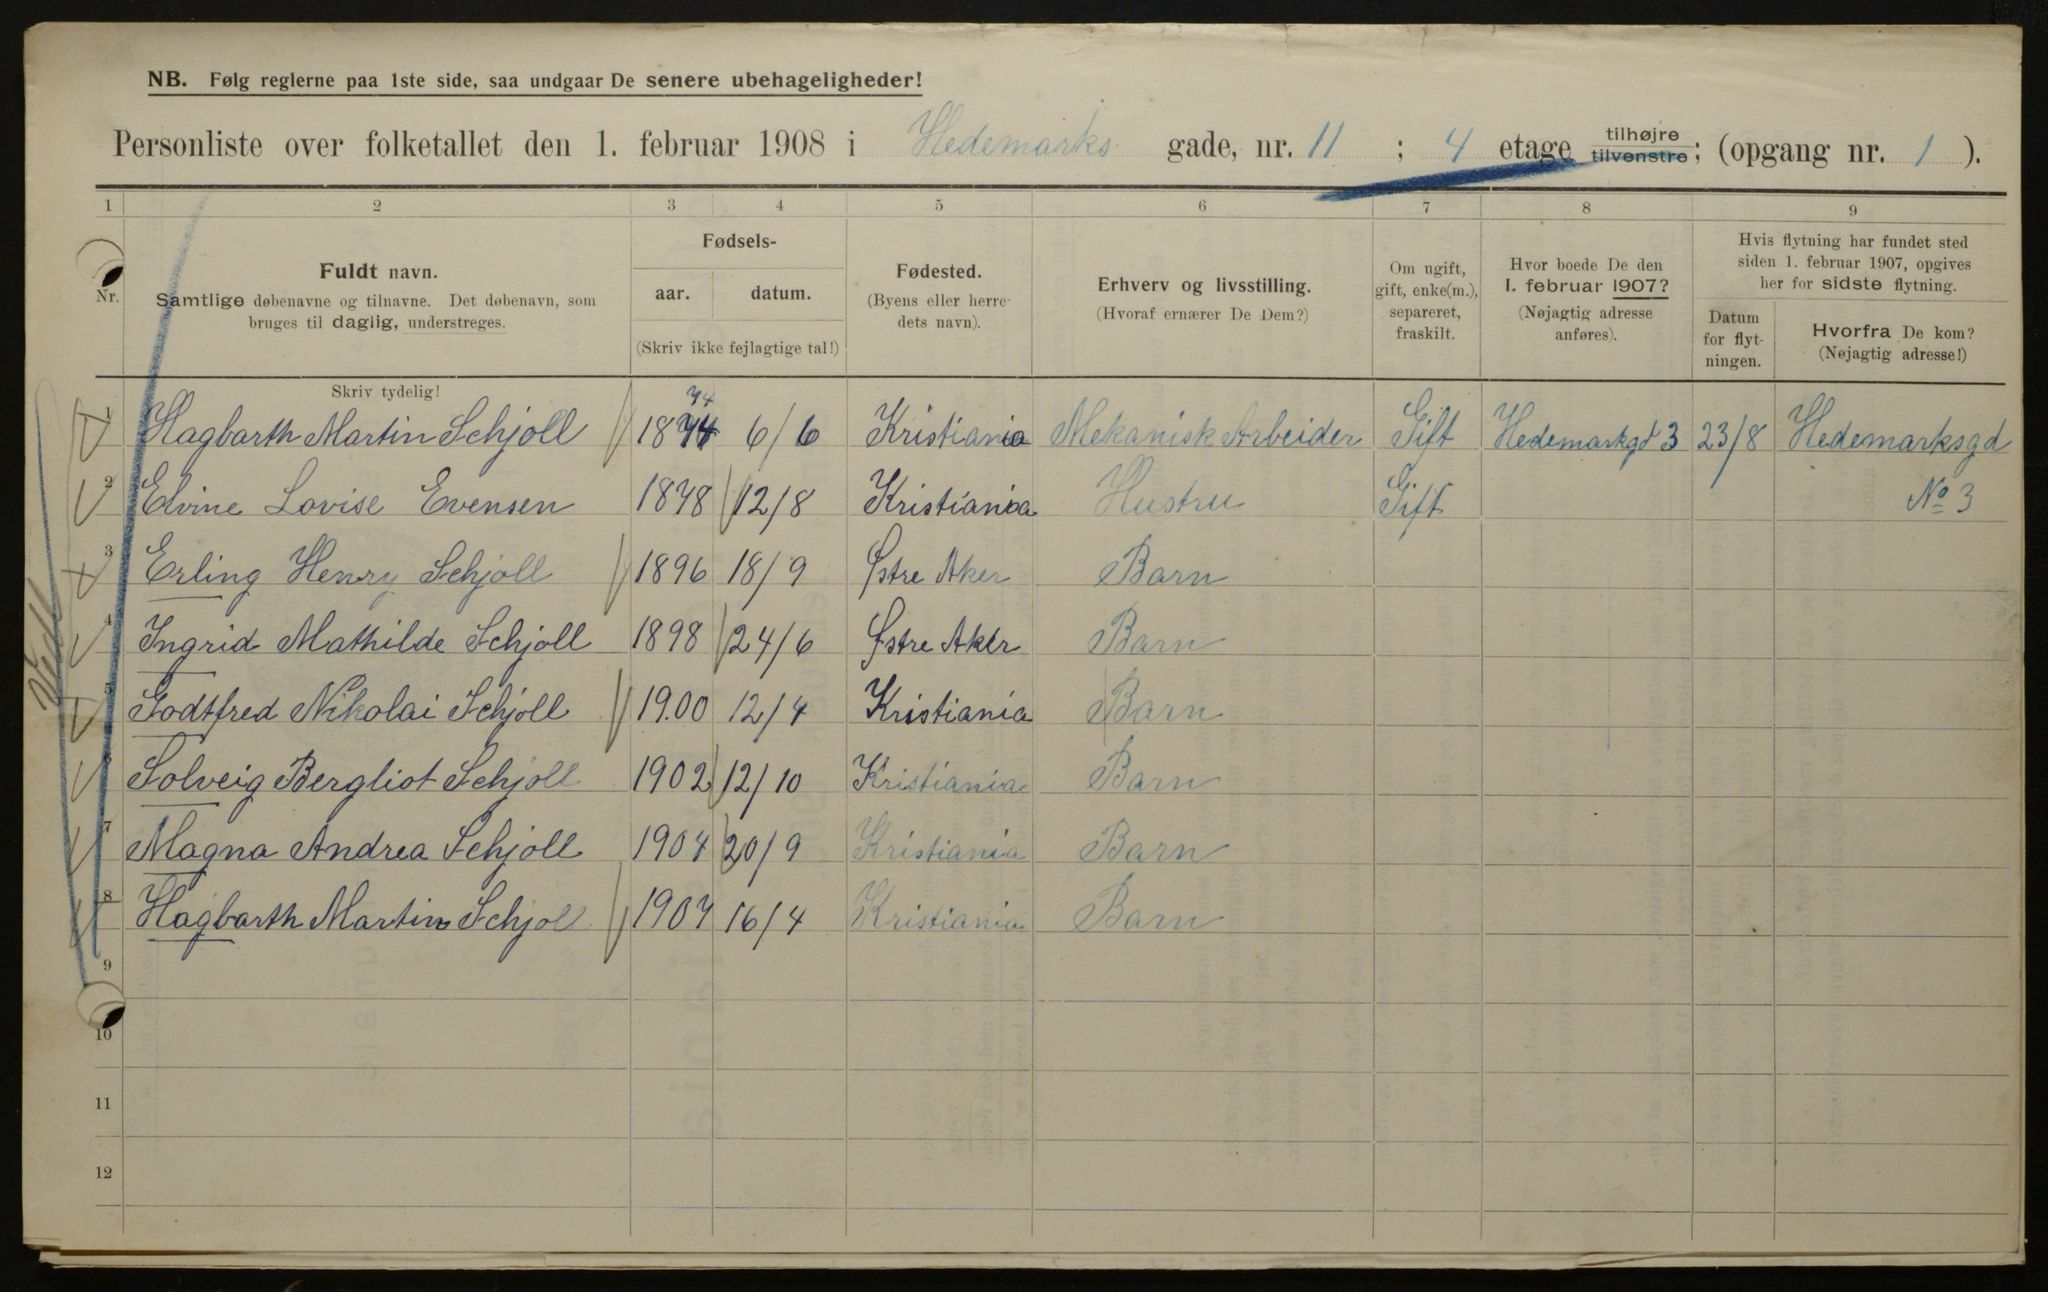 NB. Følg reglerne paa 1ste side, saa undgaar De senere ubehageligheder!
Personliste over folketallet den 1. februar 1908 i Hedemarks gade, nr. 11 ; 4 etage tilhøjre tilvenstre; (opgang nr. 1 ).
1 2 3 4 5 6 7 8 9
Nr.
Fuldt navn.
Samtlige døbenavne og tilnavne. Det døbenavn, som
bruges til daglig, understreges.
Fødsels-
aar. datum.
(Skriv ikke fejlagtige tal!)
Fødested.
(Byens eller herre-
dets navn).
Erhverv og livsstilling.
(Hvoraf ernærer De Dem?)
Om ugift,
gift, enke(m.),
separeret,
fraskilt.
Hvor boede De den
1. februar 1907?
(Nøjagtig adresse
anføres).
Hvis flytning har fundet sted
siden 1. februar 1907, opgives
her for sidste flytning.
Datum
for flyt-
ningen.
Hvorfra De kom?
(Nøjagtig adresse!)
Skriv tydelig!
74
1 Hagbarth Martin Schjoll 1874 6/6 Kristiania Mekanisk Arbeider Gift Hedemarkgd 3 23/8 Hedemarksgd
2 Elvine Lovise Evensen 1878 12/8 Kristiania Hustru Gift No 3
3 Erling Henry Schjoll 1896 18/9 Østre Aker Barn
4 Ingrid Mathilde Schjoll 1898 24/6 Østre Aker Barn
5 Godtfred Nikolai Schjoll 19.00 12/4 Kristiania Barn
6 Solveig Bergliot Schjoll 1902 12/10 Kristiania Barn
7 Magna Andrea Schjoll 1904 20/9 Kristiania Barn
8 Hagbarth Martin Schjoll 1907 16/4 Kristiania Barn
9
10
11
12